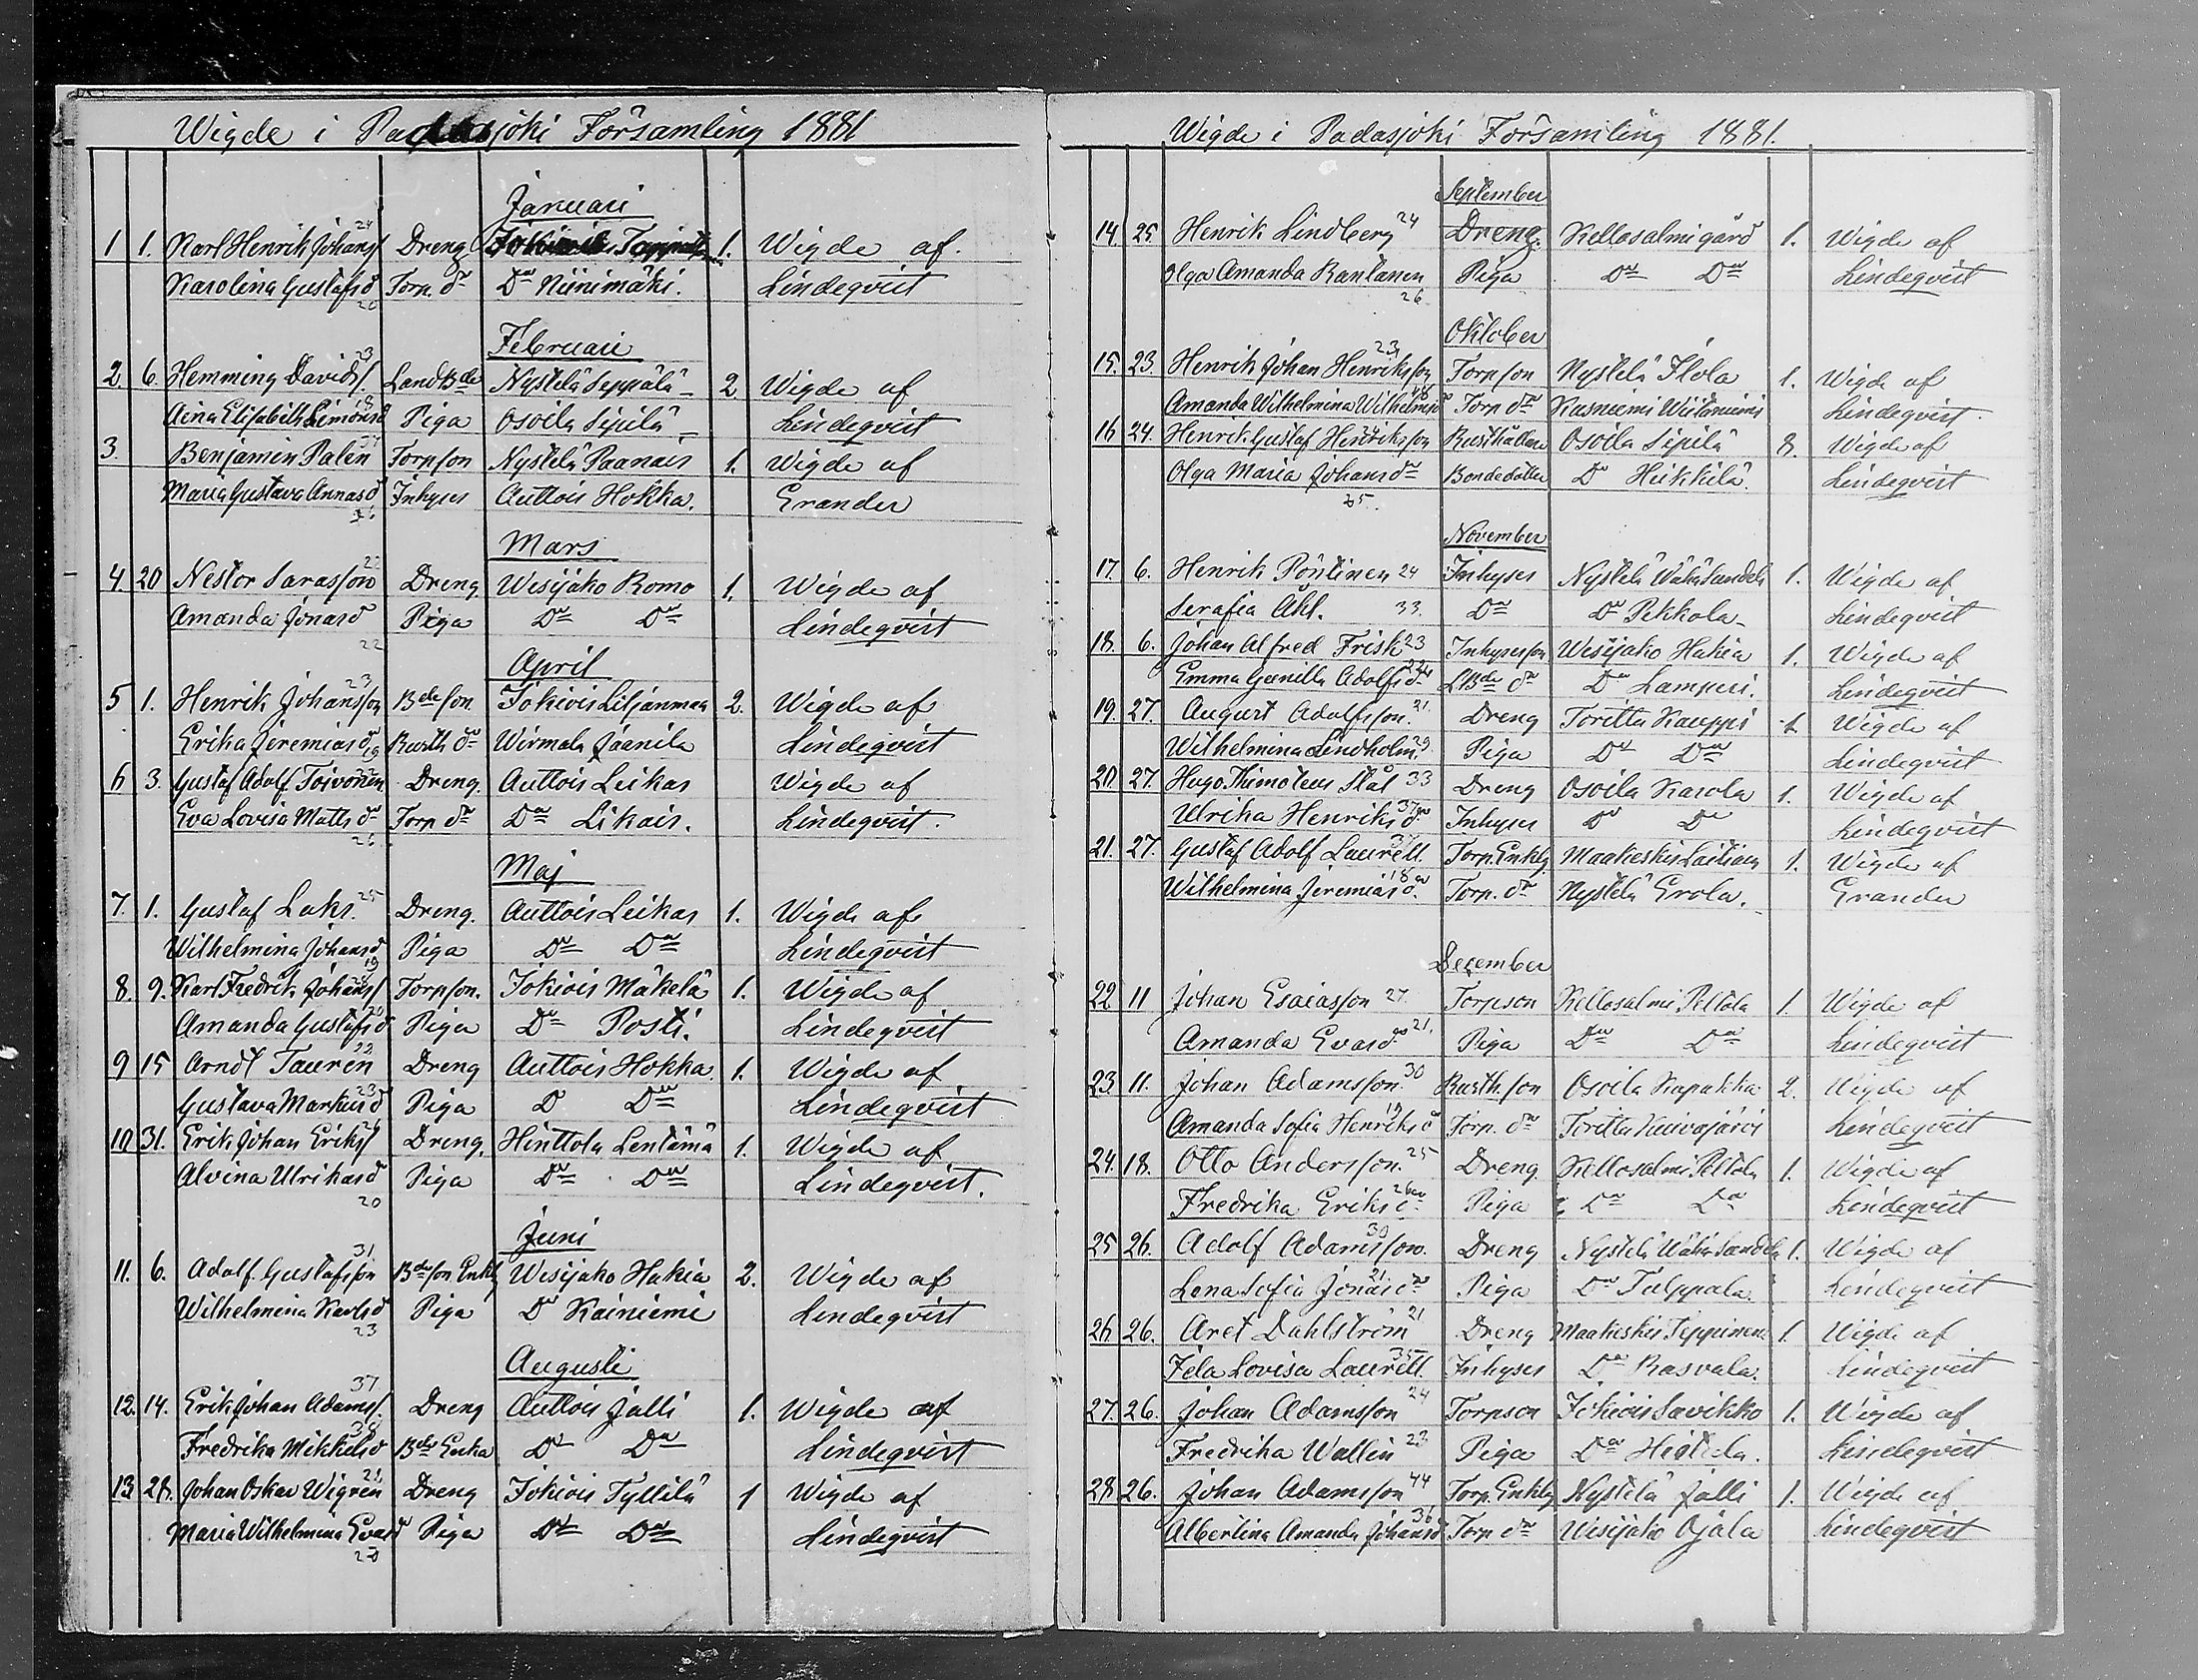 Wigde i Padasjoki Församling 1881
Januari
1 1. Karl Henrik Johans/ 24 Dreng Jokiois 1. Wigde af
Karolina Gustafsd 20 Torp. dr Do Niinimäki. Lindeqvist
Februari
2 6. Hemming Davids/. 23 Landbde Nystelä Seppälä 2 Wigde af
Aina Elisabeth Simonsd 18 Piga Osoila Sipilä Lindeqvist
3. Benjamin Palén 37 Torpson Nystelä Paanais 1. Wigde af
Maria Gustava Annasd Inhyses Auttois Hokka. Grander
Mars
4 20 Nestor Sarasson 22 Dreng Wesijako Romo 1. Wigde af
Amanda Jonasd 22 Piga Do Do Lindeqvist
April
5 1. Henrik Johansson 23 Bdeson Jokiois Liljanmaa 2. Wigde af
Erika Jeremiasd 19 Rusth dr Wirmala Jaanila Lindeqvist
6 3. Gustaf Adolf Toivonen Dreng. Auttois Leikas Wigde af
Eva Lovisa Matts dr 26 Torp dr Do Likais. Lindeqvist.
Maj
7. 1. Gustaf Laks. 25 Dreng. Auttois Leikas 1. Wigde af
Wilhelmina Johansd 19 Piga Do Do Lindeqvist
8. 9. Karl Fredrik Johans/ Torpson. Jokiois Mäkelä 1. Wigde af
Amanda Gustafsd 20 Piga Do Posti. Lindeqvist
9 15 Arndt Taurén 22 Dreng Auttois Hokka. 1. Wigde af
Gustava Markusd 23 Piga D Do Lindeqvist
10 31. Erik Johan Eriks/ Dreng. Hinttola Lentämä 1. Wigde af
Alvina Ulrikasd 20 Piga Do Do Lindeqvist.
Juni
11. 6. Adolf Gustafsson 31. Bdeson Enkl Wesijako Hakia 2. Wigde af
Wilhelmina Karlsd 23 Piga Do Kainiemi Lindeqvist
Augusti
12. 14. Erik Johan Adams/. 37 Dreng Auttois Jalli 1. Wigde af
Fredrika Mikkelsd 38 Bde Enka Do Do Lindeqvist
13 28. Johan Oskar Wigrén 21, Dreng Jokiois Tyllilä 1 Wigde af
Maria Wilhelmina Evasd 20 Piga Do Do Lindeqvist
Wigde i Padasjoki Församling 1881.
September
14 25 Henrik Lindberg 24 Dreng. Kellosalmi gård 1. Wigde af
Olga Amanda Rantanen 26 Piga Do Do Lindeqvist
Oktober
15. 23. Henrik Johan Henriksson 23, Torpson Nystelä Ilola 1. Wigde af
Amanda Wilhelmina Wilhelmsd Torp dr Kasniemi Wiitaniemi Lindeqvist.
16 24. Henrik Gustaf Henriksson Rusthållare Osoila Sipilä 8. Wigde af
Olga Maria Johans dr 25. Bondedotter Do Heikkilä. Lindeqvist
November
17. 6. Henrik Pöntinen 24 Inhyses Nystelä Wähä Sandela 1. Wigde af
Serafia Ahl. 33. Do Do Pekkola Lindeqvist
18. 6. Johan Alfred Frisk 23 Inhysesson Wesijako Hakia 1. Wigde af
Emma Gunilla Adolfsdr LBde dr Do Lamperi. Lindeqvist
19. 27. August Adolfsson. 21. Dreng Toritta Kauppi 1 Wigde af
Wilhelmina Lindholm. 29. Piga Do Do Lindeqvist
20. 27. Hugo Thimoteus Stål 33 Dreng Osoila Karola 1. Wigde af
Ulrika Henriksdr 37 Inhyses Do Do Lindeqvist
21. 27. Gustaf Adolf Laurell. Torp. Enkl. Maakeskis Laitiain 1. Wigde af
Wilhelmina Jeremiasdr 18 Torp. dr Nystelä Erola. Grander
December
22 11 Johan Esaiasson 27. Torpson Kellosalmi Peltola 1. Wigde af
Amanda Evasdr 21. Piga Do Do Lindeqvist
23 11. Johan Adamsson. 30 Rusth. son Osoila Kapakka 2. Wigde af
Amanda Sofia Henriksd 19 Torp. dr Toritta Kuivajärvi Lindeqvist
24. 18. Otto Andersson. 25 Dreng Kellosalmi Peltola 1. Wigde af
Fredrika Eriksdr 26 Piga Do Do Lindeqvist
25 26. Adolf Adamsson. 30 Dreng Nystelä Wähä Sandela 1. Wigde af
Lena Sofia Jonasdr 21 Piga Do Tulppala. Lindeqvist
26 26. Aret Dahlström 21 Dreng Maakeskis Seppinen 1. Wigde af
Fela Lovisa Laurell. 35 Inhyses Do Rasvala. Lindeqvist
27. 26. Johan Adamsson 24 Torpson Jokiois Savikko 1. Wigde af
Fredrika Wallin 23 Piga Do Hietela. Lindeqvist
28 26. Johan Adamsson 44 Torp. Enkl. Nystelä Jalli 1. Wigde af
Albertina Amanda Johansd 36 Torp dr Wesijako Ojala Lindeqvist